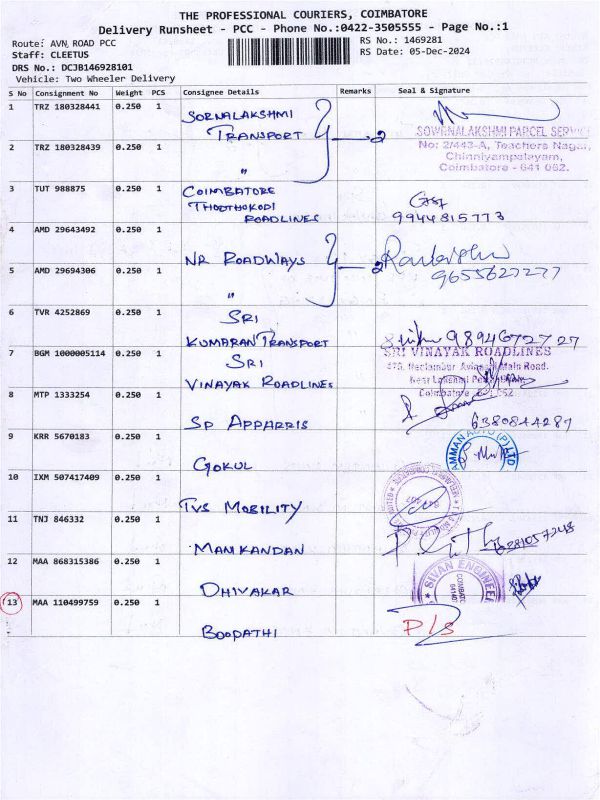 THE PROFESSIONAL COURIERS, COIMBATORE
Delivery Runsheet - PCC - Phone No.:0422-3505555 - Page No.:1
Route: AVN, ROAD PCC
RS No.: 1469281
Staff: CLEETUS
RS Date: 05-Dec-2024
DRS No.: DCJB146928101
Vehicle: Two Wheeler Delivery
S No Consignment No Weight PCS Consignee Details Remarks Seal & Signature
1 TRZ 180328441 0.250 1 SORNALAKSHMI
TRANSPORT
2
SOWRNALAKSHMI PARCEL SERVICE
No: 2/443-A, Teachers Nagar,
Chinniyampalayam,
Coimbatore - 641 062.
2 TRZ 180328439 0.250 1 "
3 TUT 988875 0.250 1 COIMBATORE
THOOTHOKODI
ROADLINES
9944815773
4 AMD 29643492 0.250 1 NR ROADWAYS
2
9655627277
5 AMD 29694306 0.250 1 "
6 TVR 4252869 0.250 1 SRI
KUMARAN TRANSPORT
9894672727
7 BGM 1000005114 0.250 1 SRI
VINAYAK ROADLINES
SRI VINAYAK ROADLINES
Main Road.
Coimbatore
8 MTP 1333254 0.250 1 SP APPARRIS
6380844287
9 KRR 5670183 0.250 1 GOKUL
AMMAN AUTO (P) LTD
10 IXM 507417409 0.250 1 TVS MOBILITY
11 TNJ 846332 0.250 1 MANIKANDAN
12 MAA 868315386 0.250 1 DHIVAKAR
SIVAN ENGINEER
COIMBATORE
13 MAA 110499759 0.250 1 BOOPATHI
P/S